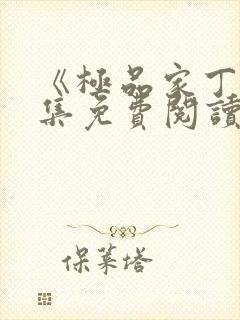 《極品家丁
集免費閱讀
保萊塔